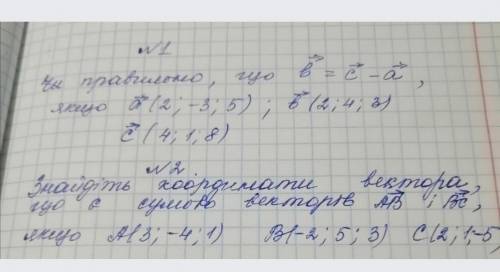 №1
Чи правильно, що b⃗ = c⃗ - a⃗,
якщо a⃗ (2; -3; 5) ; b⃗ (2; 4; 3)
c⃗ (4; 1, 8)
№2
Знайдіть координати вектора,
що є сумою векторів AB⃗ і BC⃗,
якщо A(3; -4; 1) B(-2; 5; 3) C(2; 1; -5)